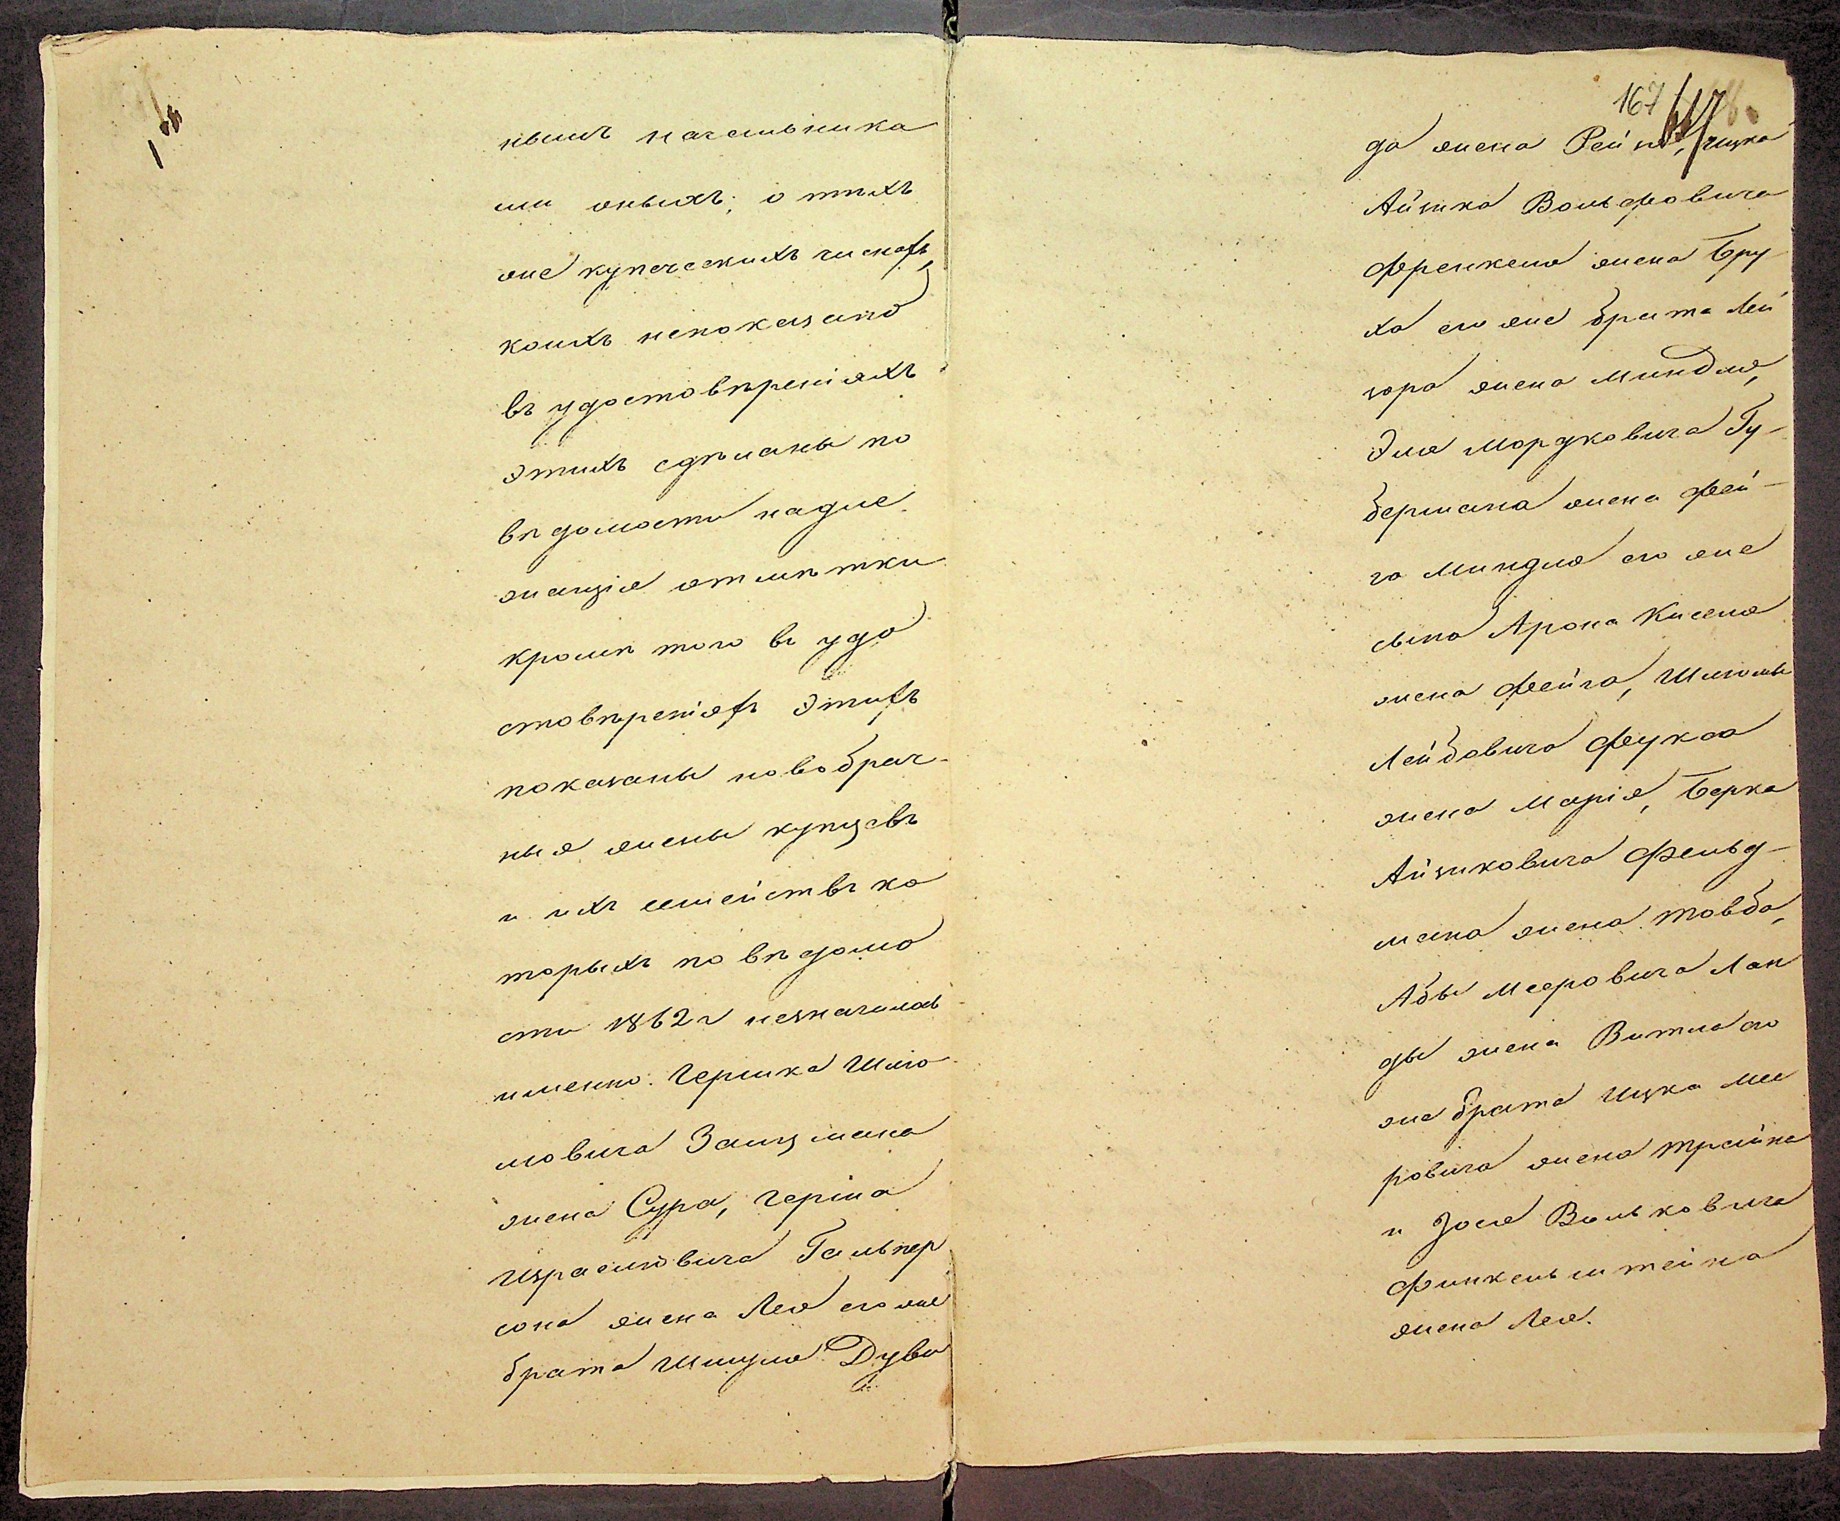 нымъ начальника
ми оныхъ; о тѣхъ
же купеческихъ
коихъ непоказано
въ удостовѣреніяхъ
этихъ сдѣланы по
вѣдомости надле
жащія отмѣтки
кромѣ того въ удо
стовѣреніяхъ этихъ
показаны новобрач-
ныя жены купцевъ
и ихъ семействъ ко
торыхъ по вѣдомо
сти 1862 г незначилось
именно: Гершка Шмо
мовича Зальцмана
жена Сура, Герша
Израилевича Гальпер
сона жена Лея его же
брата Шмуля Дуви
167
да жена Рейза, Ицка
Айзика Вольфовича
Френкеля жена Бру
ха его же брата Лей
зора жена Миндля,
Эля Мордковича Гу-
бермана жена Фей-
га Миндля его же
сына Арона Киселя
жена Фейга, Шмомы
Лейбовича Фукса
жена Марія, Берка
Айзиковича Фельд-
мана жена Товба,
Абы Мееровича Лан
ды жена Витля его
же брата Ицка Мее
ровича жена Трейна
и Зося Вольковича
Финкельштейна
жена Лея.